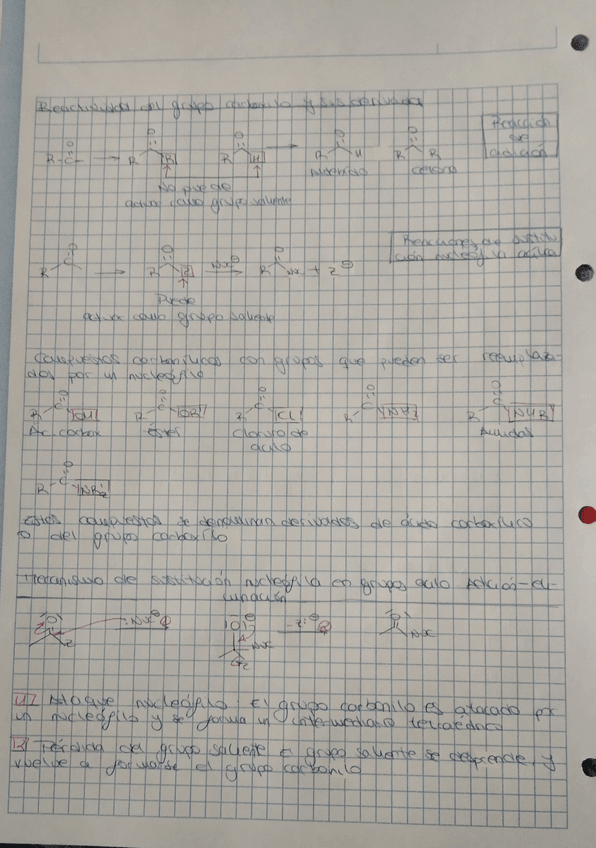 Reactividad del grupo carbonilo y sus derivados
Reacción
de
adición
R-C-
O
R
R
O
R
H
O
R
H
O
R
R
No puede
actuar como grupo saliente
cetona
Reacciones de sustitu-
ción nucleófila acílica
R
O
C
R
O
Z
Nu⊖
R
O
Nu + Z⊖
Puede
actuar como grupo saliente
Compuestos carbonílicos con grupos que pueden ser reemplaza-
dos por un nucleófilo
R C O OH
R C O OR'
R C O Cl
R C O NH2
R C O NHR'
Ác. carbox
Éster
Cloruro de
acilo
Amidas
R C O NR'2
Estos compuestos se denominan derivados de ácido carboxílico
o del grupo carboxilo
Mecanismo de sustitución nucleófila en grupos acilo Adición-eli-
minación
O
Z
:Nu⊖
O
Nu
Z
-Z:⊖
O
Nu
Ataque nucleófilo: El grupo carbonilo es atacado por
un nucleófilo y se forma un intermediario tetraédrico
Pérdida del grupo saliente el grupo saliente se desprende, y
vuelve a formarse el grupo carbonilo